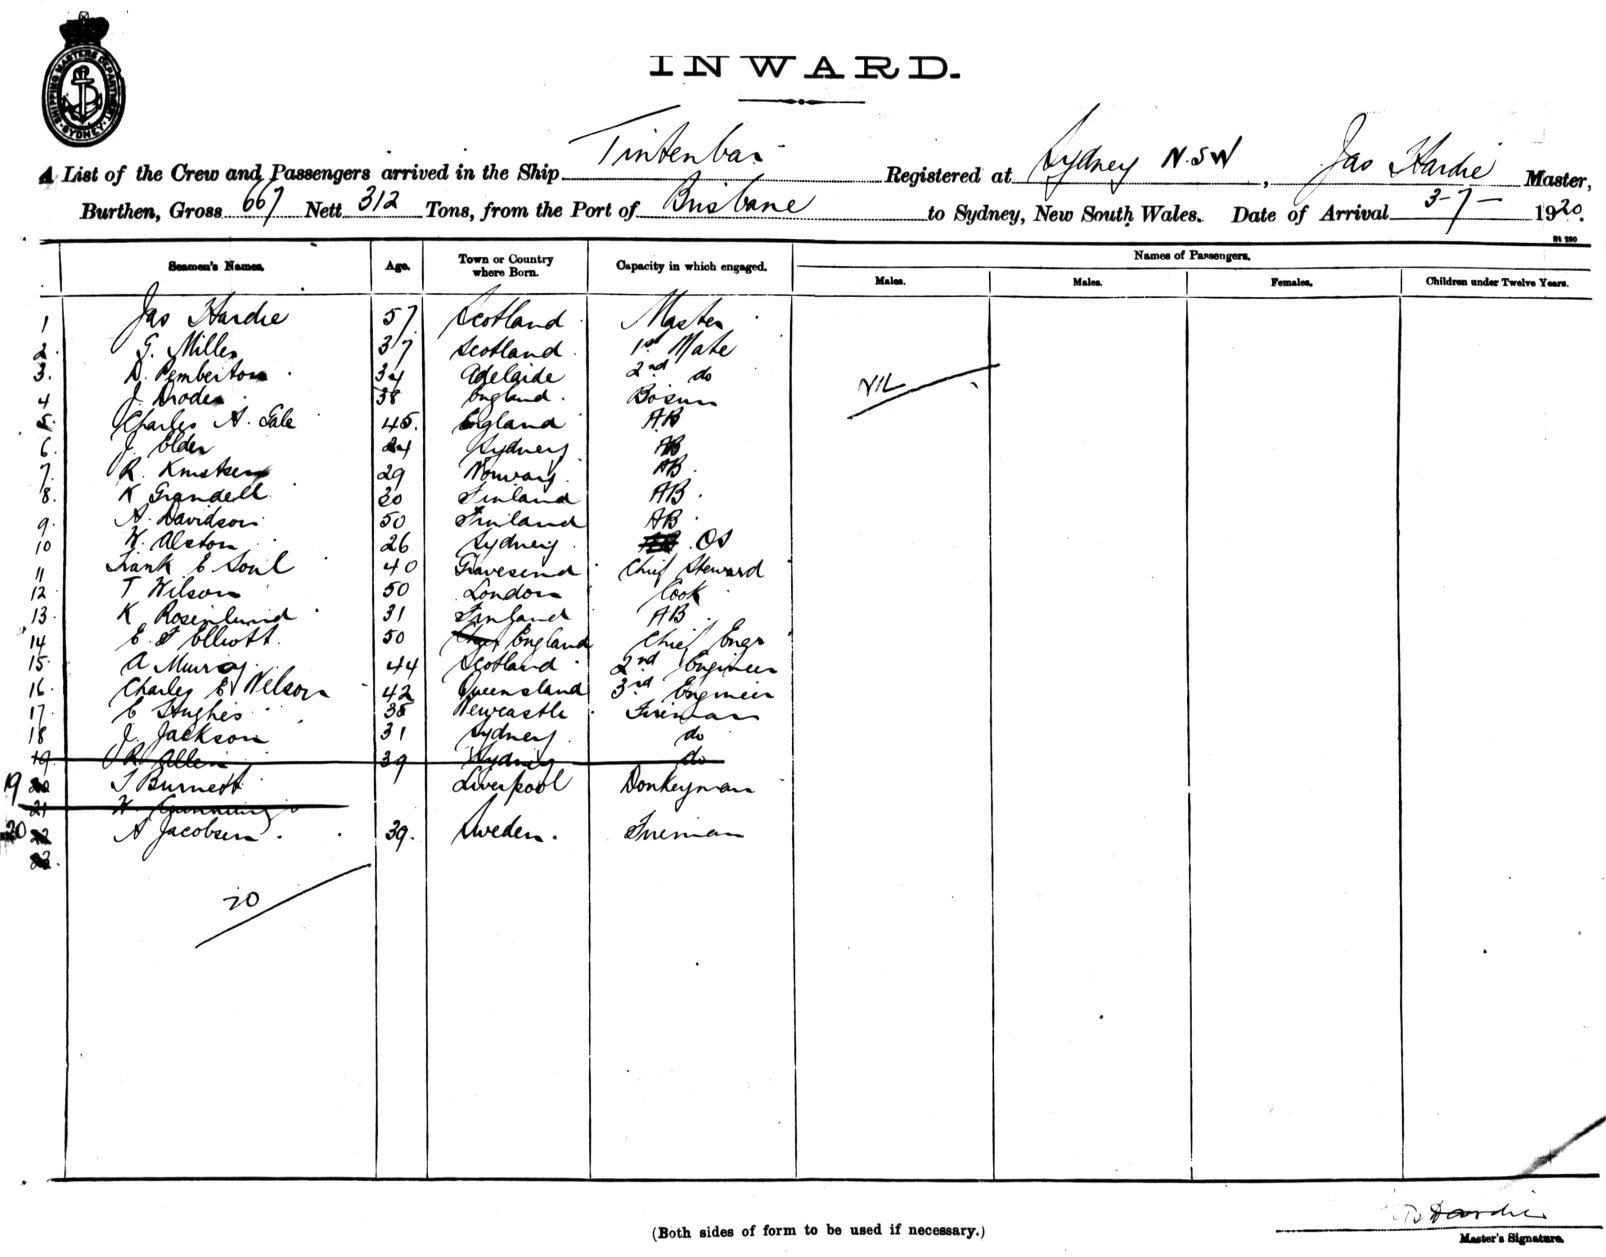 SHIPPING MASTERS DEPARTMENT SYDNEY
INWARD.
A List of the Crew and Passengers arrived in the Ship Tintenbar Registered at Sydney N.SW, Jas Hardie Master,
Burthen, Gross 667 Nett 312 Tons, from the Port of Brisbane to Sydney, New South Wales. Date of Arrival 3-7- 1920.
St 280
Seamen's Names. Age. Town or Country where Born. Capacity in which engaged. Names of Passengers.
Males. Males. Females. Children under Twelve Years.
1 Jas Hardie 57 Scotland Master
2. G. Miller 37 Scotland 1st Mate
3. D. Pemberton 34 Adelaide 2nd do
4 J. 38 England Bosun
5. Charles A. Gale 45. England AB
6. J. Elder 24 Sydney AB
7. R. Knutsen 29 Norway AB
8. K Grandell 30 Finland AB
9. A. Davidson 50 Finland AB
10 W. Alston 26 Sydney OS
11 Frank E Soul 40 Gravesend Chief Steward
12. T Wilson 50 London Cook
13. K Rosenlund 31 Finland AB
14 E. F Elliott. 50 England Chief Engr
15. A Murray 44 Scotland 2nd Engineer
16. Charles E Nelson 42 Queensland 3rd Engineer
17. E Hughes 38 Newcastle Fireman
18 J. Jackson 31 Sydney do
19 R Allen 39 Sydney do
19 20 T Burnett Liverpool Donkeyman
21 W.
20 22 A Jacobsen. 39. Sweden. Fireman
23.
NIL
20
(Both sides of form to be used if necessary.)
Hardie
Master's Signature.